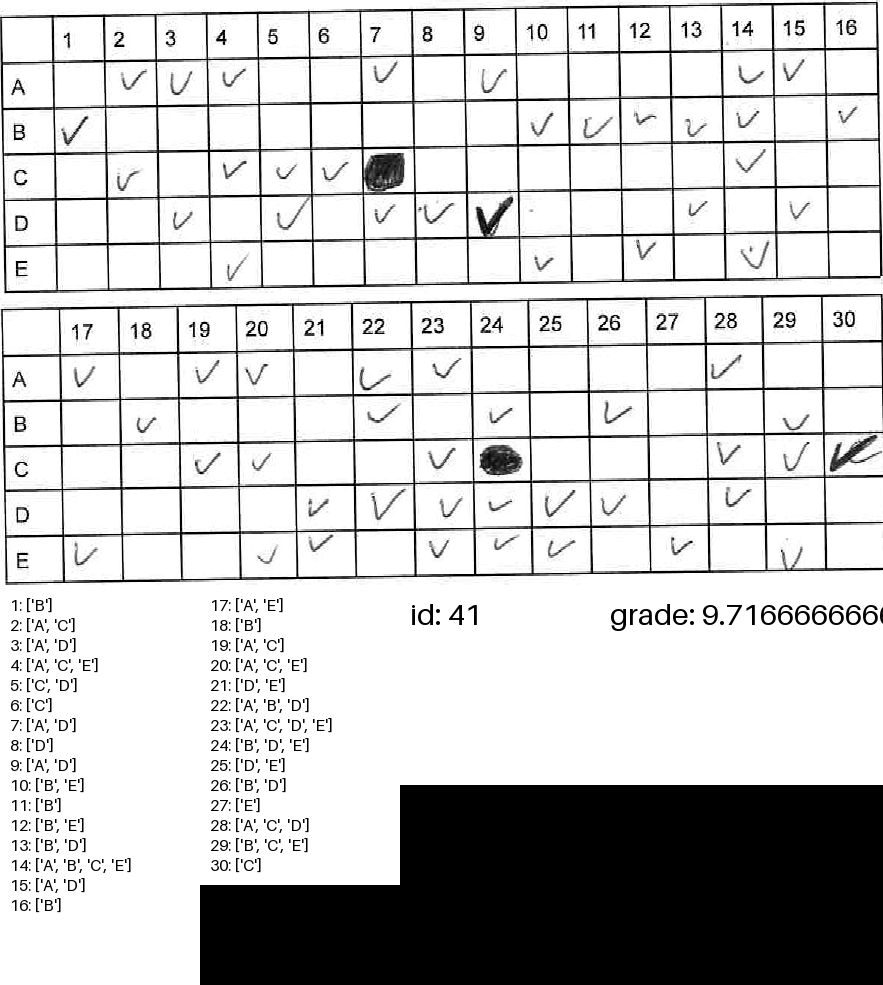 1 2 3 4 5 6 7 8 9 10 11 12 13 14 15 16
A
B
C
D
E
17 18 19 20 21 22 23 24 25 26 27 28 29 30
A
B
C
D
E
1: ['B']
2: ['A', 'C']
3: ['A', 'D']
4: ['A', 'C', 'E']
5: ['C', 'D']
6: ['C']
7: ['A', 'D']
8: ['D']
9: ['A', 'D']
10: ['B', 'E']
11: ['B']
12: ['B', 'E']
13: ['B', 'D']
14: ['A', 'B', 'C', 'E']
15: ['A', 'D']
16: ['B']
17: ['A', 'E']
18: ['B']
19: ['A', 'C']
20: ['A', 'C', 'E']
21: ['D', 'E']
22: ['A', 'B', 'D']
23: ['A', 'C', 'D', 'E']
24: ['B', 'D', 'E']
25: ['D', 'E']
26: ['B', 'D']
27: ['E']
28: ['A', 'C', 'D']
29: ['B', 'C', 'E']
30: ['C']
id: 41
grade: 9.7166666666